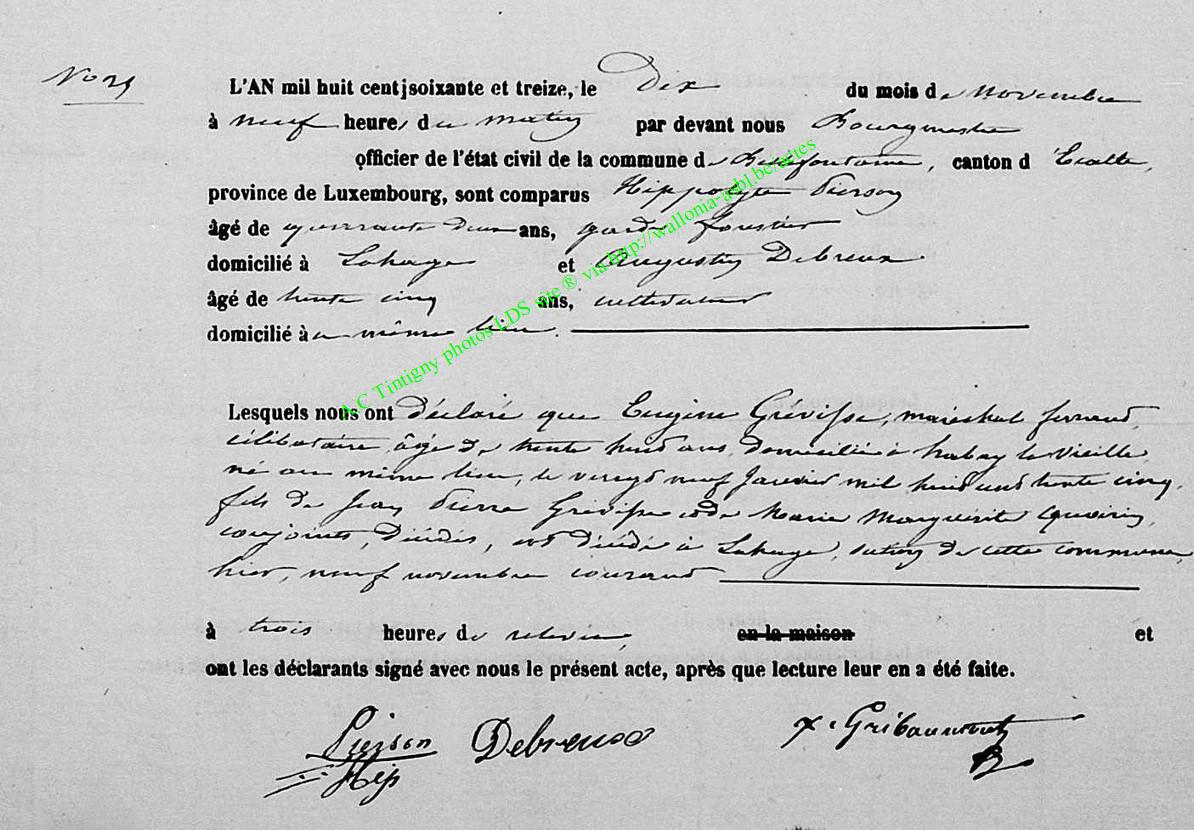 No 29
L'AN mil huit cent soixante et treize, le Dix du mois de novembre
à neuf heures du matin par devant nous Bourgmestre
officier de l'état civil de la commune de Bellefontaine, canton d'Etalle,
province de Luxembourg, sont comparus Hippolyte Pierson
âgé de quarante deux ans, garde forestier
domicilié à Lahage et Augustin Debreux
âgé de trente cinq ans, cultivateur
domicilié au même lieu.
Lesquels nous ont déclaré que Eugène Grévisse, maréchal ferrant,
célibataire, âgé de trente huit ans, domicilié à habay la vieille
né au même lieu, le vingt neuf Janvier mil huit cent trente cinq,
fils de Jean Pierre Grévisse et de Marie Marguerite Quoirin,
conjoints, décédés, est décédé à Lahage, section de cette commune,
hier, neuf novembre courant
à trois heures de relevée en la maison et
ont les déclarants signé avec nous le présent acte, après que lecture leur en a été faite.
Pierson Debreux x. Gribaumont
Hip
A.C Tintigny photos LDS site ® via http://wallonia-asbl.be/actes